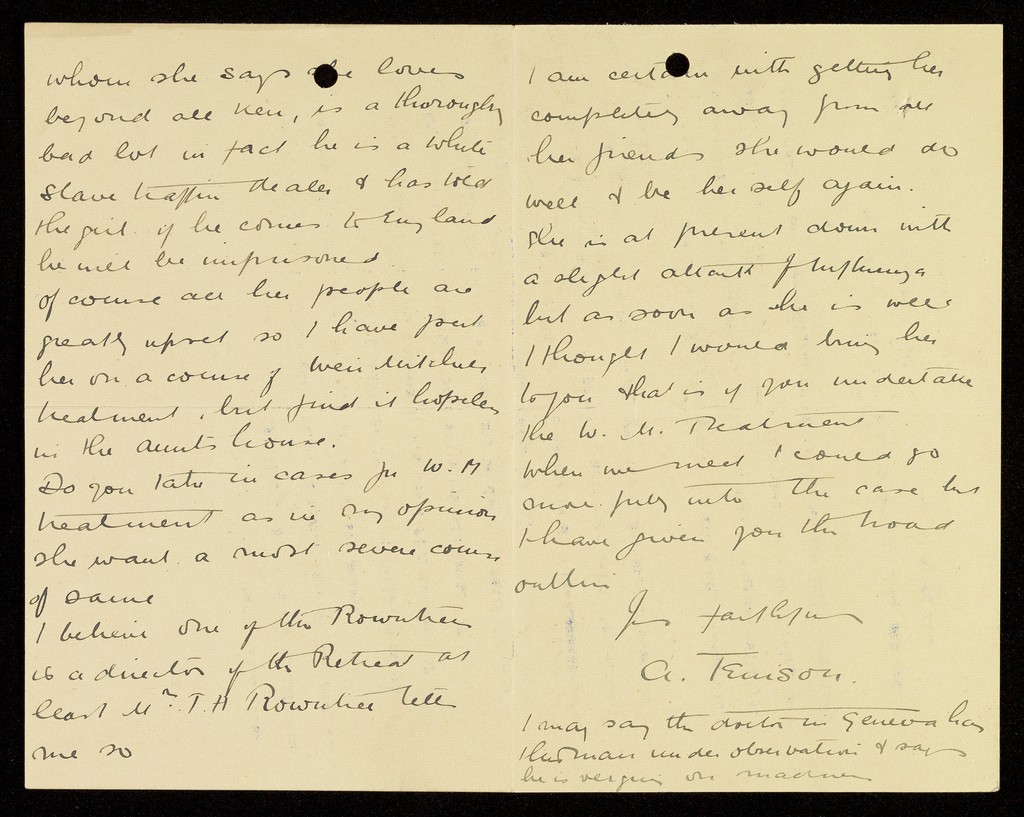 whom she says she loves
beyond all ken, is a thoroughly
bad lot in fact he is a white
slave traffic dealer & has told
the girl if he comes to England
he will be imprisoned
of course all her people are
greatly upset so I have put
her on a course of Weir Mitchell
treatment, but find it hopeless
in the aunts house.
Do you take in cases for W. M
treatment as in my opinion
she want a most severe course
of same
I believe one of the Rowntrees
is a director of the Retreat at
least Mr. T. H Rowntree tells
me so
I am certain with getting her
completely away from all
her friends she would do
well & be her self again.
She is at present down with
a slight attack of Influenza
but as soon as she is well
I thought I would bring her
to you that is if you undertake
the W. M. Treatment
when we meet I could go
more fully into the case but
I have given you the broad
outline
Yrs faithfully
A. Tenison.
I may say the doctor in Geneva has
this man under observation & says
he is verging on madness